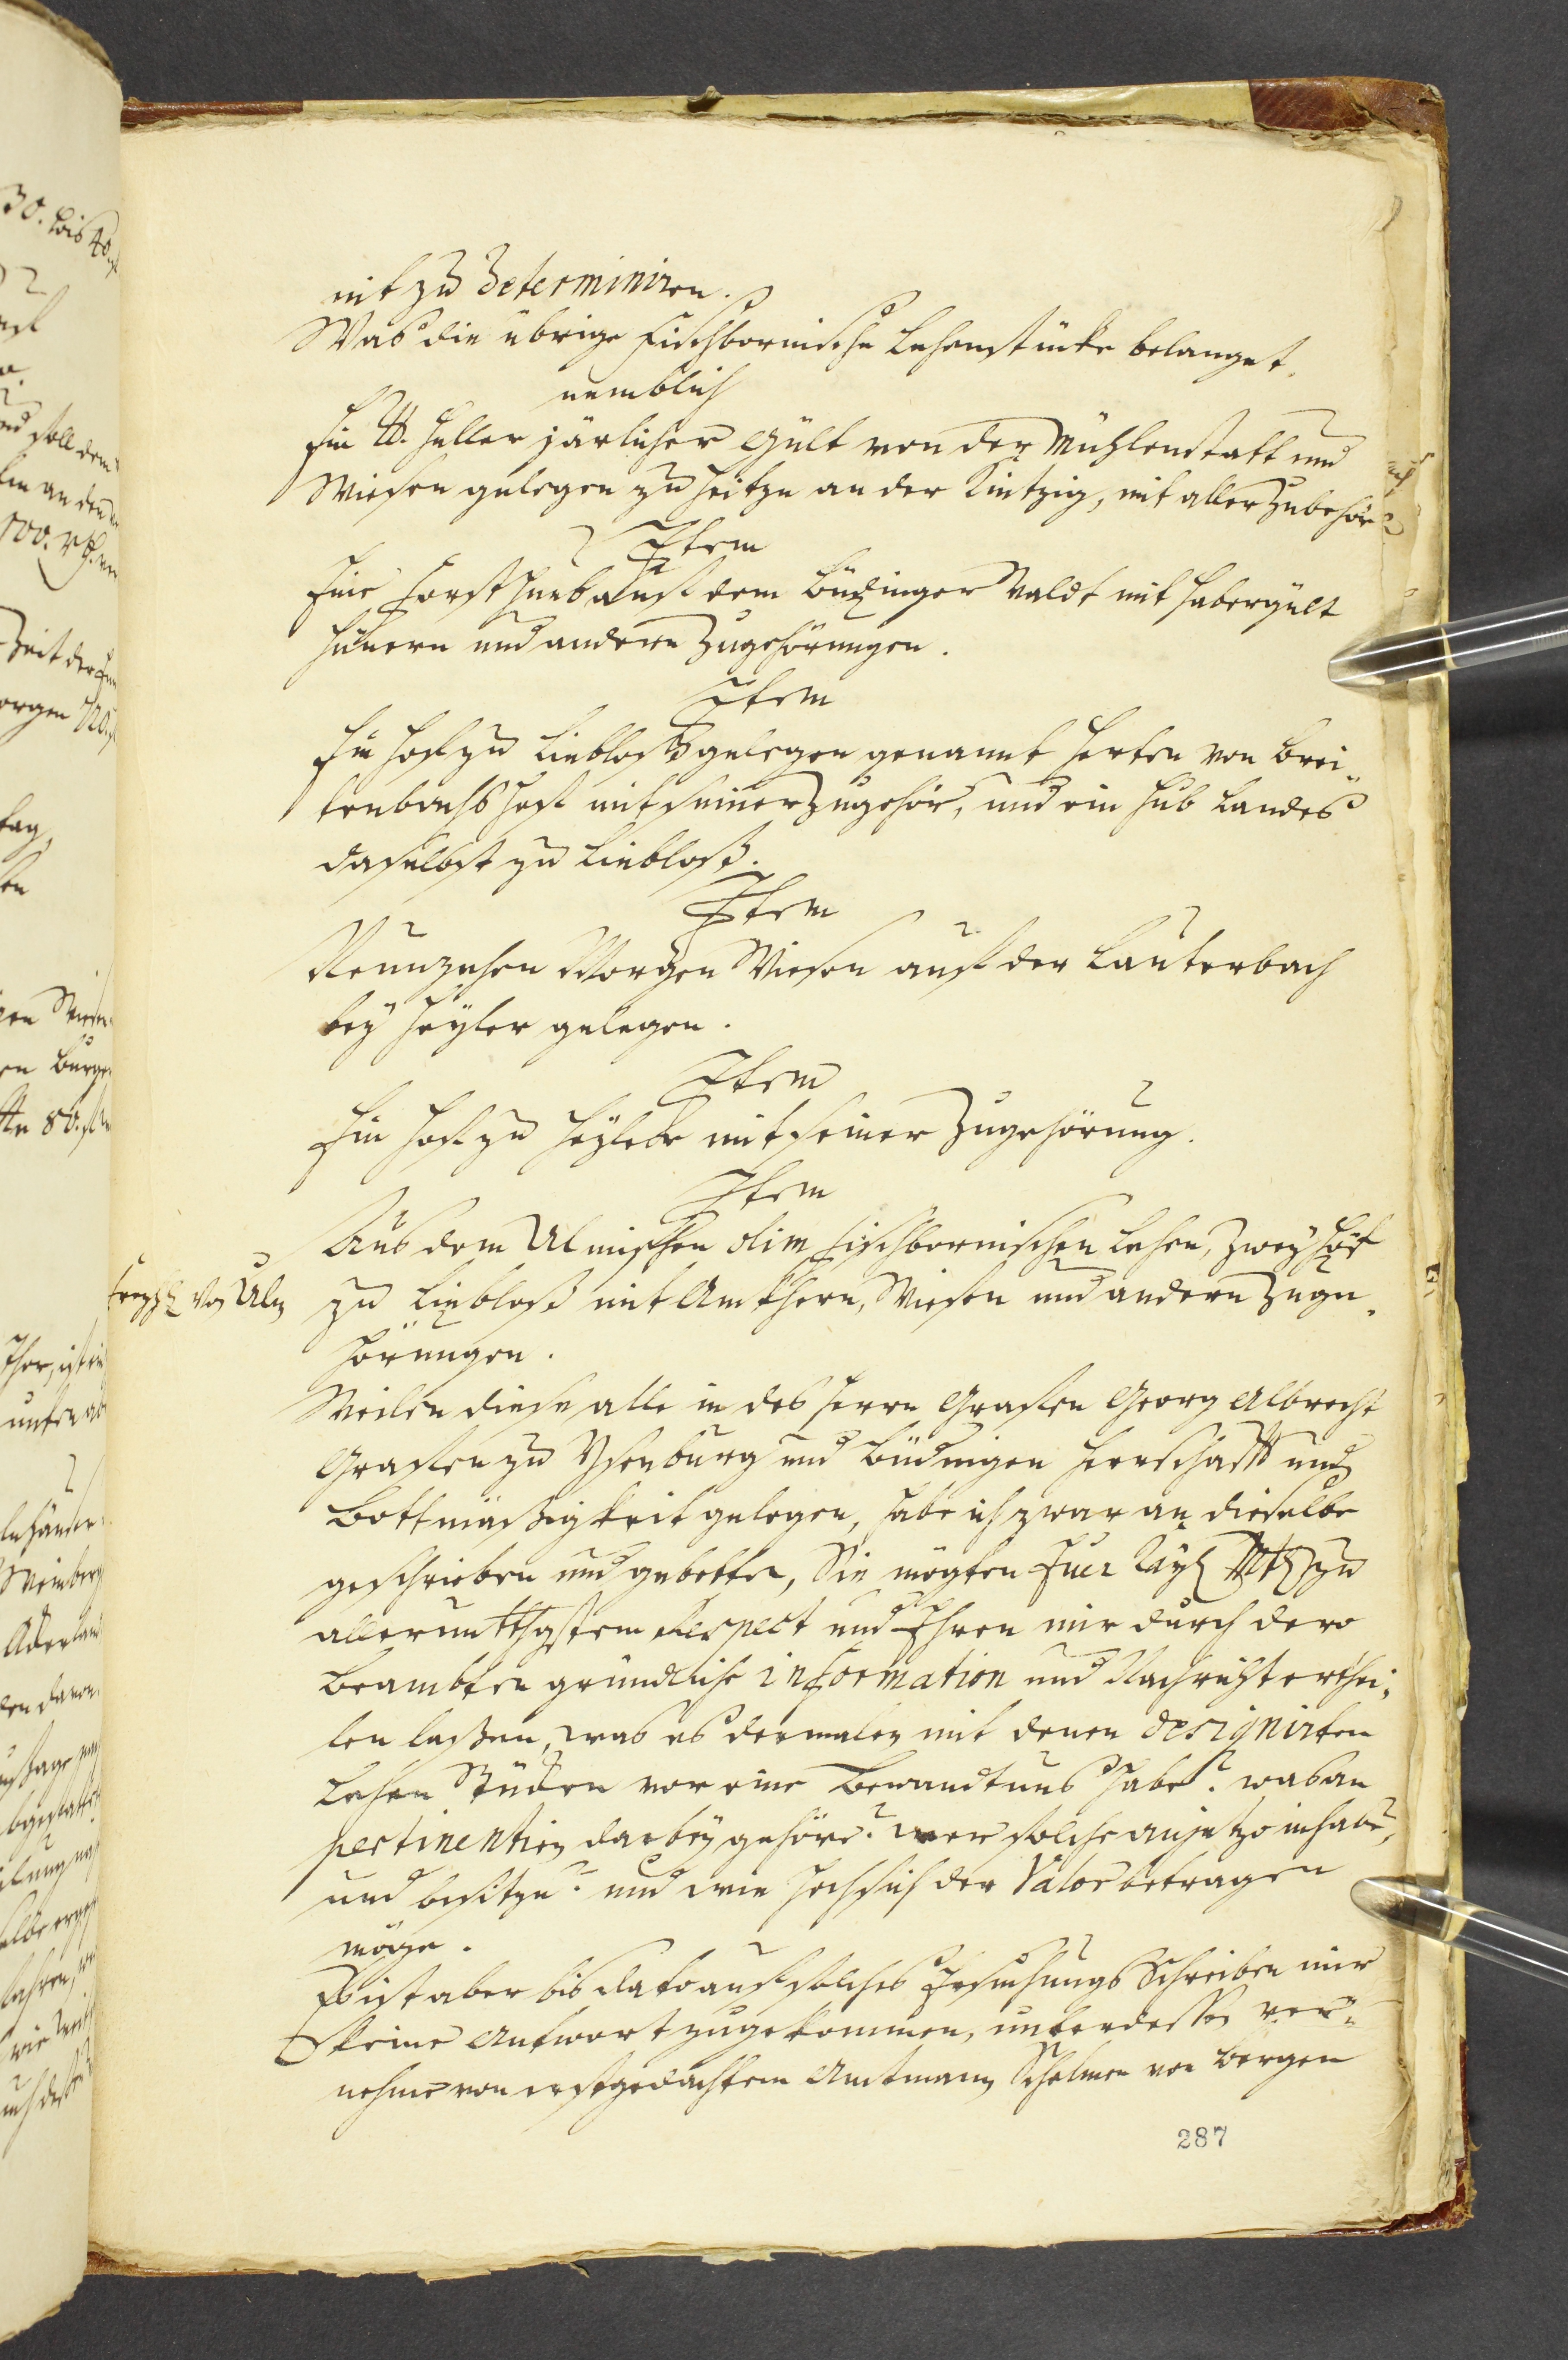 nit zu determiniren.
Was die übrige Fischbornische Lehenstücke belanget,
nemblich
Ein ℔. Heller järlicher Gült von der Mühlenstatt und
Wiesen gelegen zu Heitze an der Kintzig, mit aller Zubehör
Item
Eine Forsthueb auf dem Büdinger Waldt mit Habergült
Hünern und andern Zugehörungen.
Item
Ein Hoff zu Liebloß gelegen genannt Herten von Brei-
tenbachs Hoff mit seiner Zugehör, und ein Hub Landes
daselbst zu Liebloß.
Item
Neunzehen Morgen Wiesen auf der Lauterbach
bey Heyler gelegen.
Item
Ein Hoff zu Heyler mit seiner Zugehörung.
Item
Aus dem Ulmischen olim Fischbornischen Lehen, zwey Höf
von Ulm
zu Liebloß mit Ämkhern, Wiesen und andern Zuge-
hörungen.
Weilen diese alle in des Herrn Graffen Georg Albrecht
Graffen zu Ysenburg und Büdingen Herrschafft und
Bottmäßigkeit gelegen, habe ich zwar an dieselbe
geschrieben und gebetten, Sie mögten Euer Kayl Mtt zu
alleruntthgstem Respect und Ehren mir durch dero
Beambten gründliche information und Nachricht erthei-
len laßen, was es dermalen mit denen designirten
Lehen Stücken vor eine Bewandtnus habe? was an
pertinentien darbey gehöre? wer solche anjetzo inhabe,
und besitze? und wie hoch sich der Valor betragen
möge.
Es ist aber bis dato auf solches Ersuchungs Schreiben mir
keine Antwort zugekommen, unterdessen ver-
nehme von erstgedachtem Amtmann Schelmen von Bergen
287